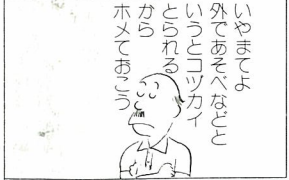 いやまてよ
外であそべなどと
いうとコヅカイ
とられる
から
ホメておこう